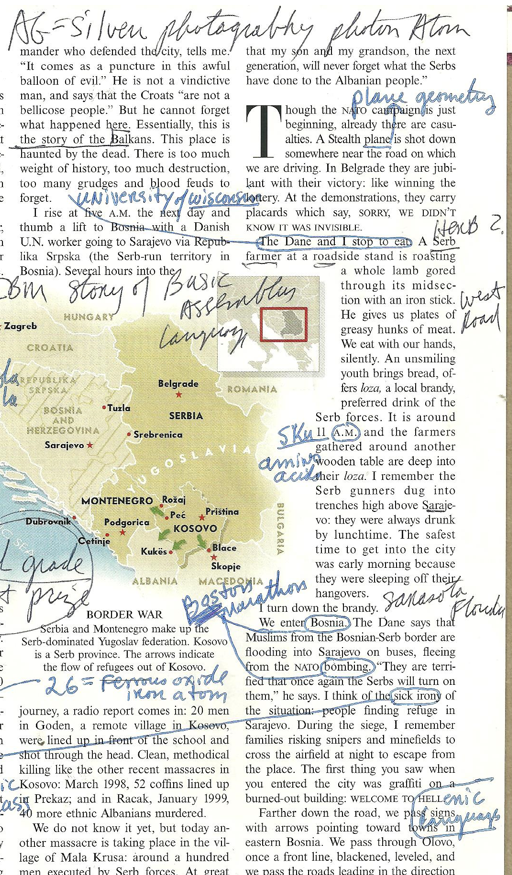 AG=Silver photography photon Atom
mander who defended the city, tells me.
"It comes as a puncture in this awful
balloon of evil." He is not a vindictive
man, and says that the Croats "are not a
bellicose people." But he cannot forget
what happened here. Essentially, this is
the story of the Balkans. This place is
haunted by the dead. There is too much
weight of history, too much destruction,
too many grudges and blood feuds to
forget.
university of wisconsin
I rise at five A.M. the next day and
thumb a lift to Bosnia with a Danish
U.N. worker going to Sarajevo via Repub-
lika Srpska (the Serb-run territory in
Bosnia). Several hours into the
IBM Story of Basic
Assembler
Language
HUNGARY
Zagreb
CROATIA
REPUBLIKA
SRPSKA
BOSNIA
AND
HERZEGOVINA
Sarajevo
Tuzla
Srebrenica
Belgrade
SERBIA
ROMANIA
YUGOSLAVIA
MONTENEGRO
Rožaj
Peć
Priština
KOSOVO
Dubrovnik
Podgorica
Cetinje
Kukës
Blace
Skopje
BULGARIA
ALBANIA
MACEDONIA
grade
prize
Boston
marathon
BORDER WAR
Serbia and Montenegro make up the
Serb-dominated Yugoslav federation. Kosovo
is a Serb province. The arrows indicate
the flow of refugees out of Kosovo.
26 = Ferrous oxide
iron atom
journey, a radio report comes in: 20 men
in Goden, a remote village in Kosovo,
were lined up in front of the school and
shot through the head. Clean, methodical
killing like the other recent massacres in
Kosovo: March 1998, 52 coffins lined up
in Prekaz; and in Racak, January 1999,
40 more ethnic Albanians murdered.
We do not know it yet, but today an-
other massacre is taking place in the vil-
lage of Mala Krusa: around a hundred
men executed by Serb forces. At great
that my son and my grandson, the next
generation, will never forget what the Serbs
have done to the Albanian people."
plane geometry
Though the NATO campaign is just
beginning, already there are casu-
alties. A Stealth plane is shot down
somewhere near the road on which
we are driving. In Belgrade they are jubi-
lant with their victory: like winning the
lottery. At the demonstrations, they carry
placards which say, SORRY, WE DIDN'T
KNOW IT WAS INVISIBLE.
Herb
The Dane and I stop to eat. A Serb
farmer at a roadside stand is roasting
a whole lamb gored
through its midsec-
tion with an iron stick.
West
Road
He gives us plates of
greasy hunks of meat.
We eat with our hands,
silently. An unsmiling
youth brings bread, of-
fers loza, a local brandy,
preferred drink of the
Serb forces. It is around
SKU
11 A.M. and the farmers
gathered around another
amino
acid
wooden table are deep into
their loza. I remember the
Serb gunners dug into
trenches high above Saraje-
vo: they were always drunk
by lunchtime. The safest
time to get into the city
was early morning because
they were sleeping off their
hangovers.
Sarasota
Florida
I turn down the brandy.
We enter Bosnia. The Dane says that
Muslims from the Bosnian-Serb border are
flooding into Sarajevo on buses, fleeing
from the NATO bombing. "They are terri-
fied that once again the Serbs will turn on
them," he says. I think of the sick irony of
the situation: people finding refuge in
Sarajevo. During the siege, I remember
families risking snipers and minefields to
cross the airfield at night to escape from
the place. The first thing you saw when
you entered the city was graffiti on a
burned-out building: WELCOME TO HELL
enic
Language
Farther down the road, we pass signs
with arrows pointing toward towns in
eastern Bosnia. We pass through Olovo,
once a front line, blackened, leveled, and
we pass the roads leading in the direction